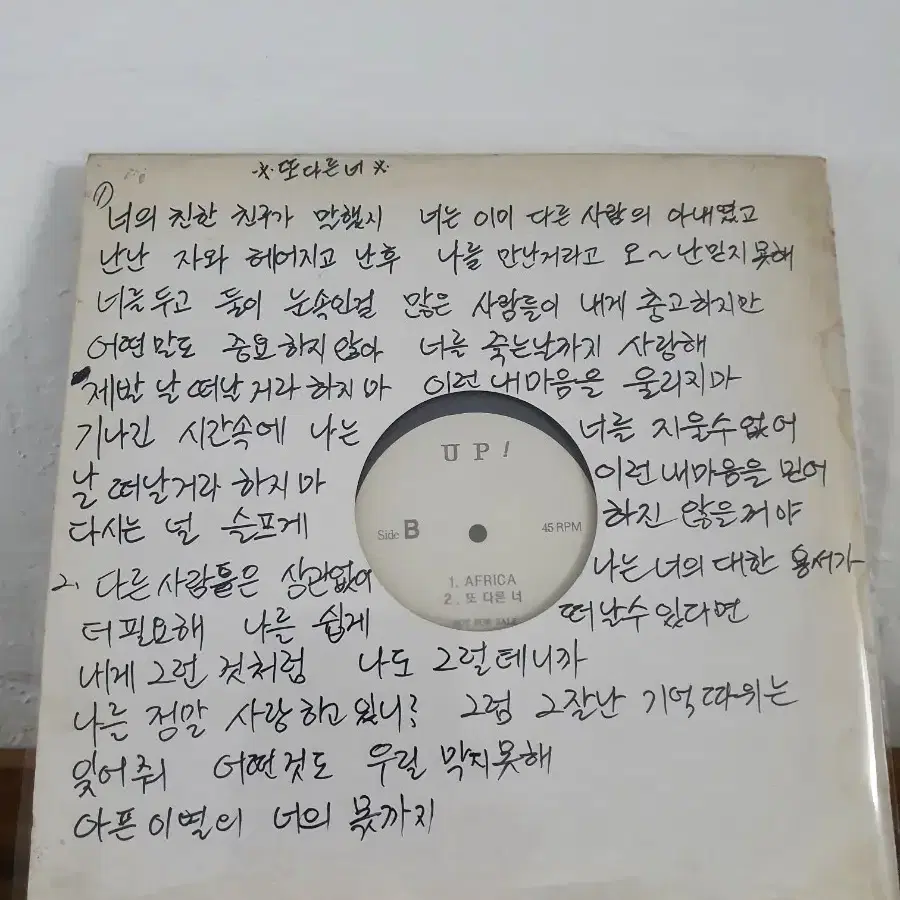 ※ 또다른너 ※
① 너의 친한 친구가 말했지 너는 이미 다른 사람의 아내였고
난난 자와 헤어지고 난후 나를 만난거라고 오~난믿지못해
너를두고 둘이 눈속인걸 많은 사람들이 내게 충고하지만
어떤말도 중요하지않아 너를 죽는날까지 사랑해
제반 날 떠날거라 하지마 이런 내마음을 울리지마
기나긴 시간속에 나는 너를 지울수없어
날 떠날거라 하지마 이런내마음을 믿어
다시는 널 슬프게 하진 않을꺼야
2. 다른사람들은 상관없어 나는 너의 대한 용서가
더필요해 나를 쉽게 떠날수있다면
내게 그런 것처럼 나도 그럴테니까
나를 정말 사랑하고 있니? 그럼 그잘난 기억따위는
잊어줘 어떤것도 우릴 막지못해
아픈이별의 너의 몫까지
UP!
Side B
45 RPM
1. AFRICA
2. 또 다른 너
NOT FOR SALE